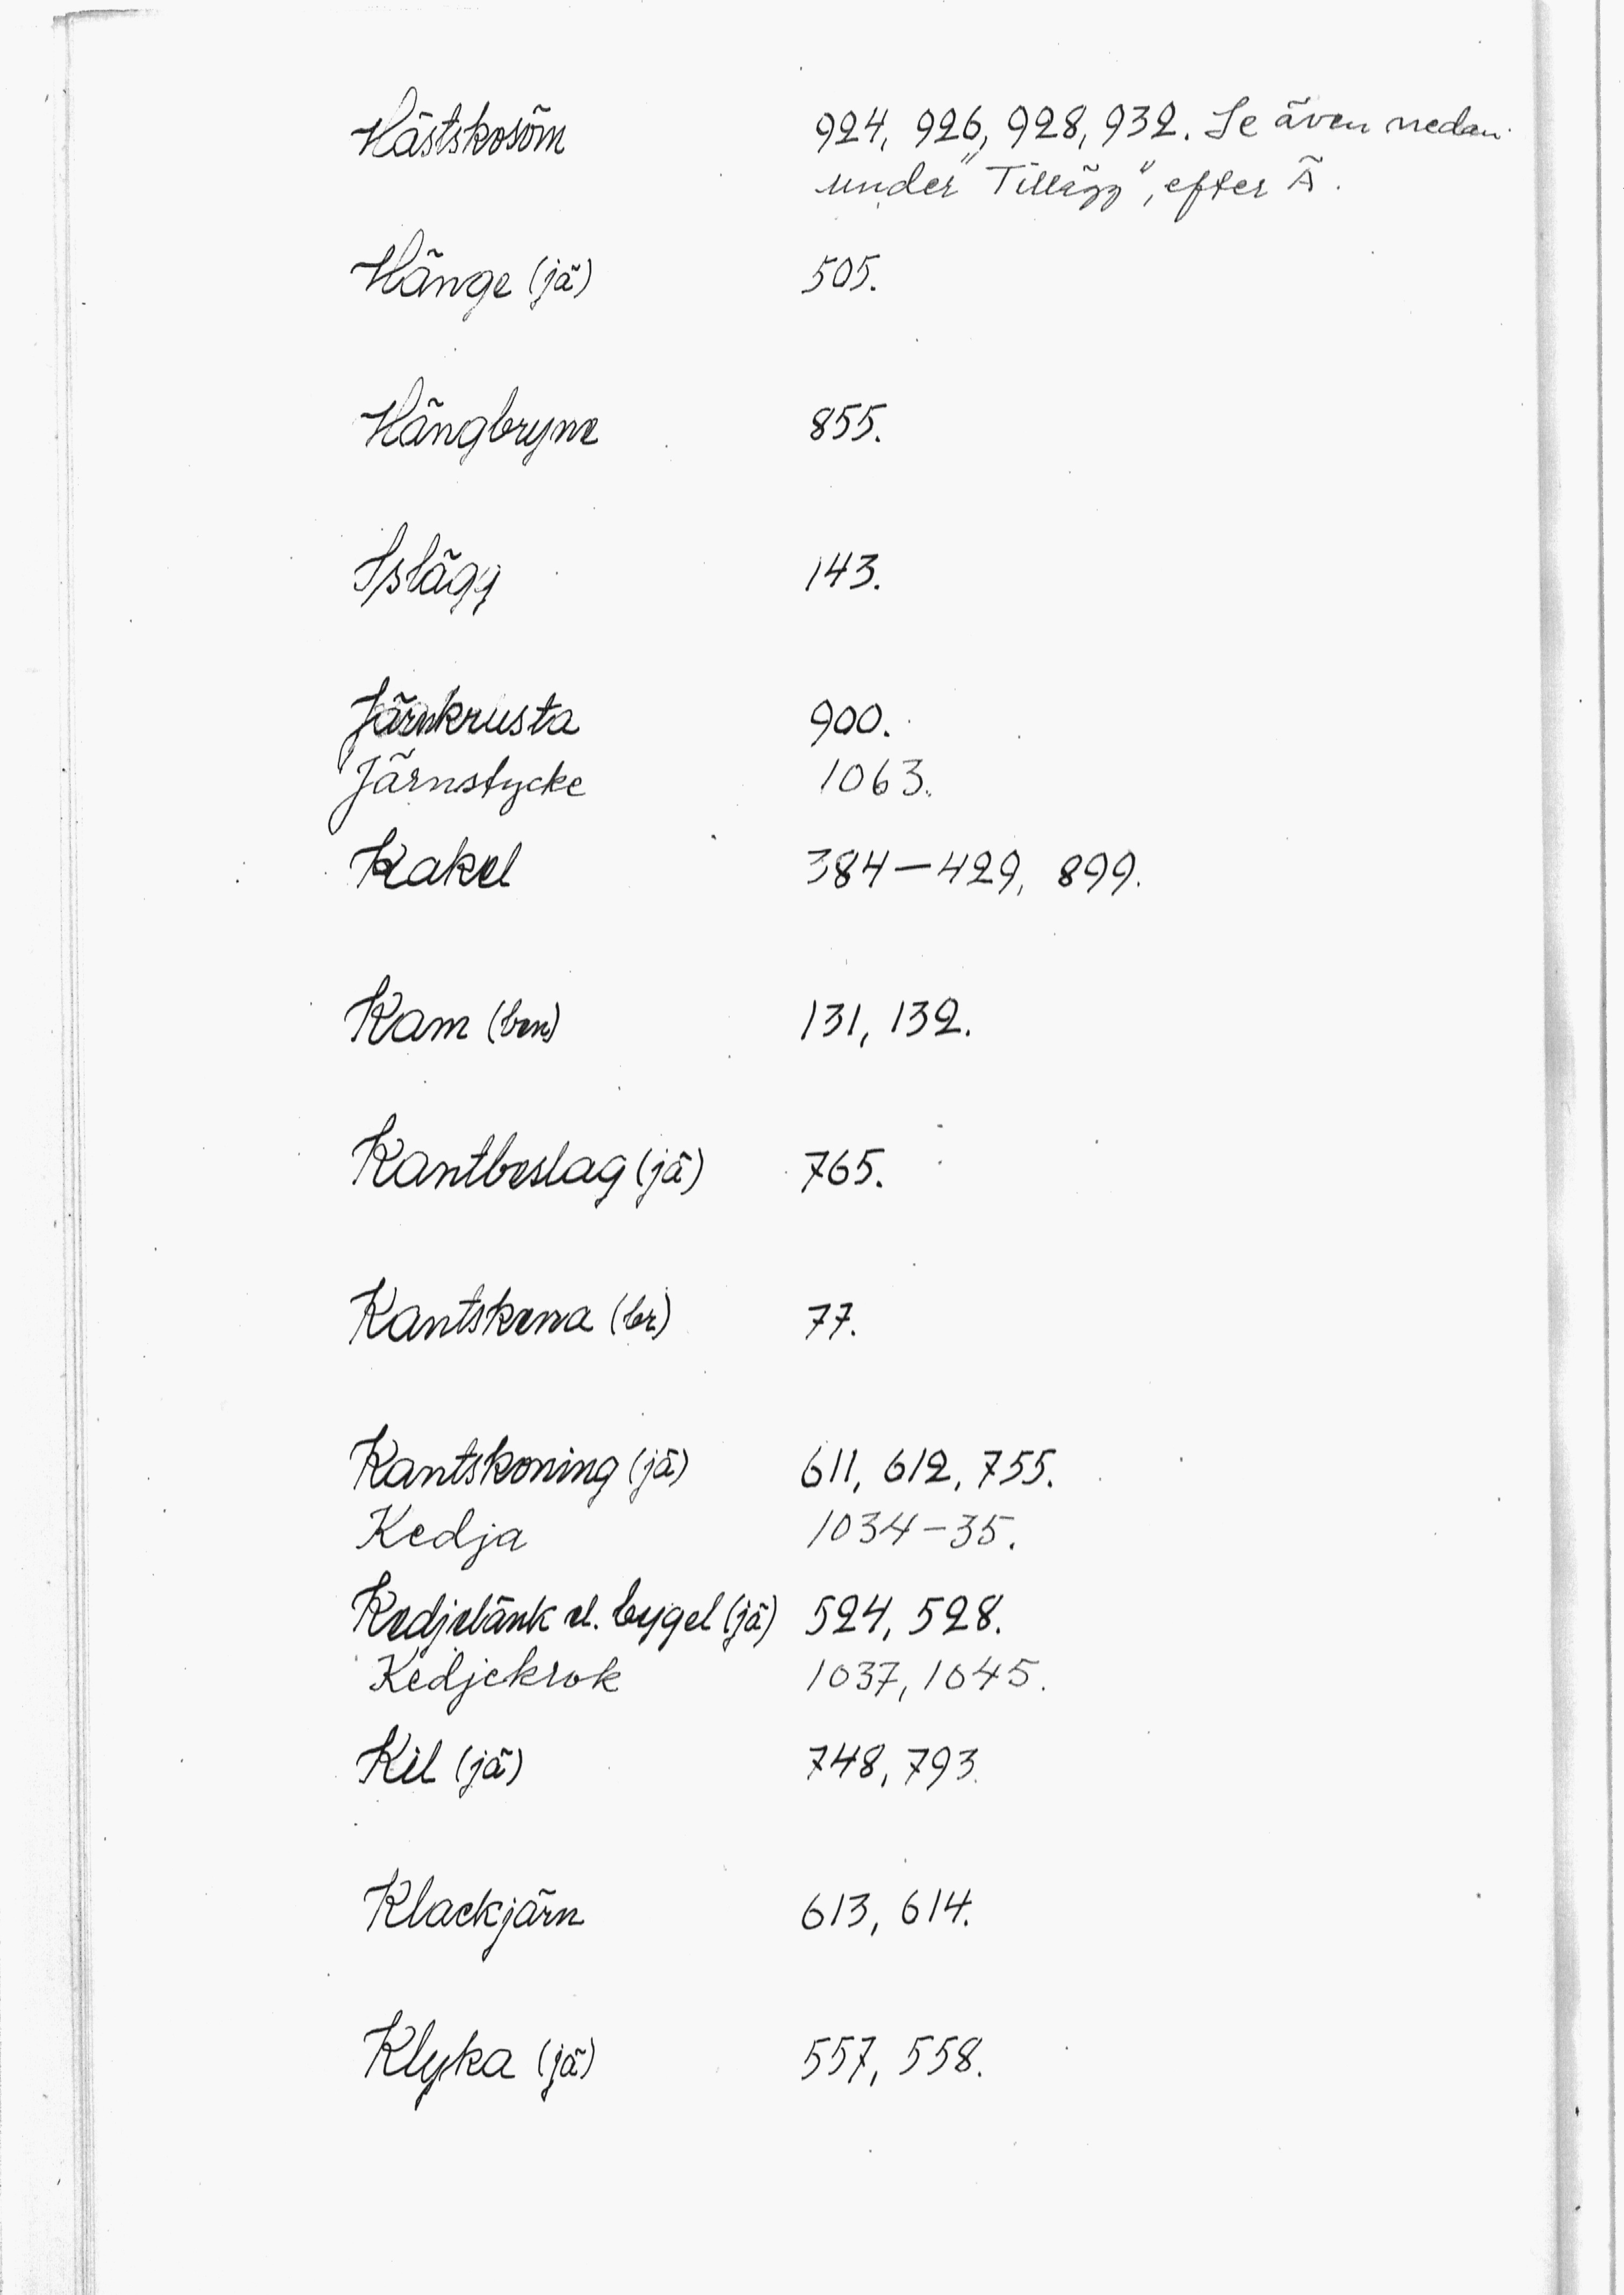 Hästskosöm 924, 926, 928, 932. Se även nedan
under "Tillägg", efter Ä.
Hänge (jä) 505.
Hängbryne 855.
Islägg 143.
Järnkrusta 900.
Järnstycke 1063.
Kakel 384–429, 899.
Kam (ben) 131, 132.
Kantbeslag (jä) 765.
Kantskena (br) 77.
Kantskoning (jä) 611, 612, 755.
Kedja 1034–35.
Kedjelänk el. bygel (jä) 524, 528.
Kedjekrok 1037, 1045.
Kil (jä) 748, 793.
Klackjärn 613, 614.
Klyka (jä) 557, 558.